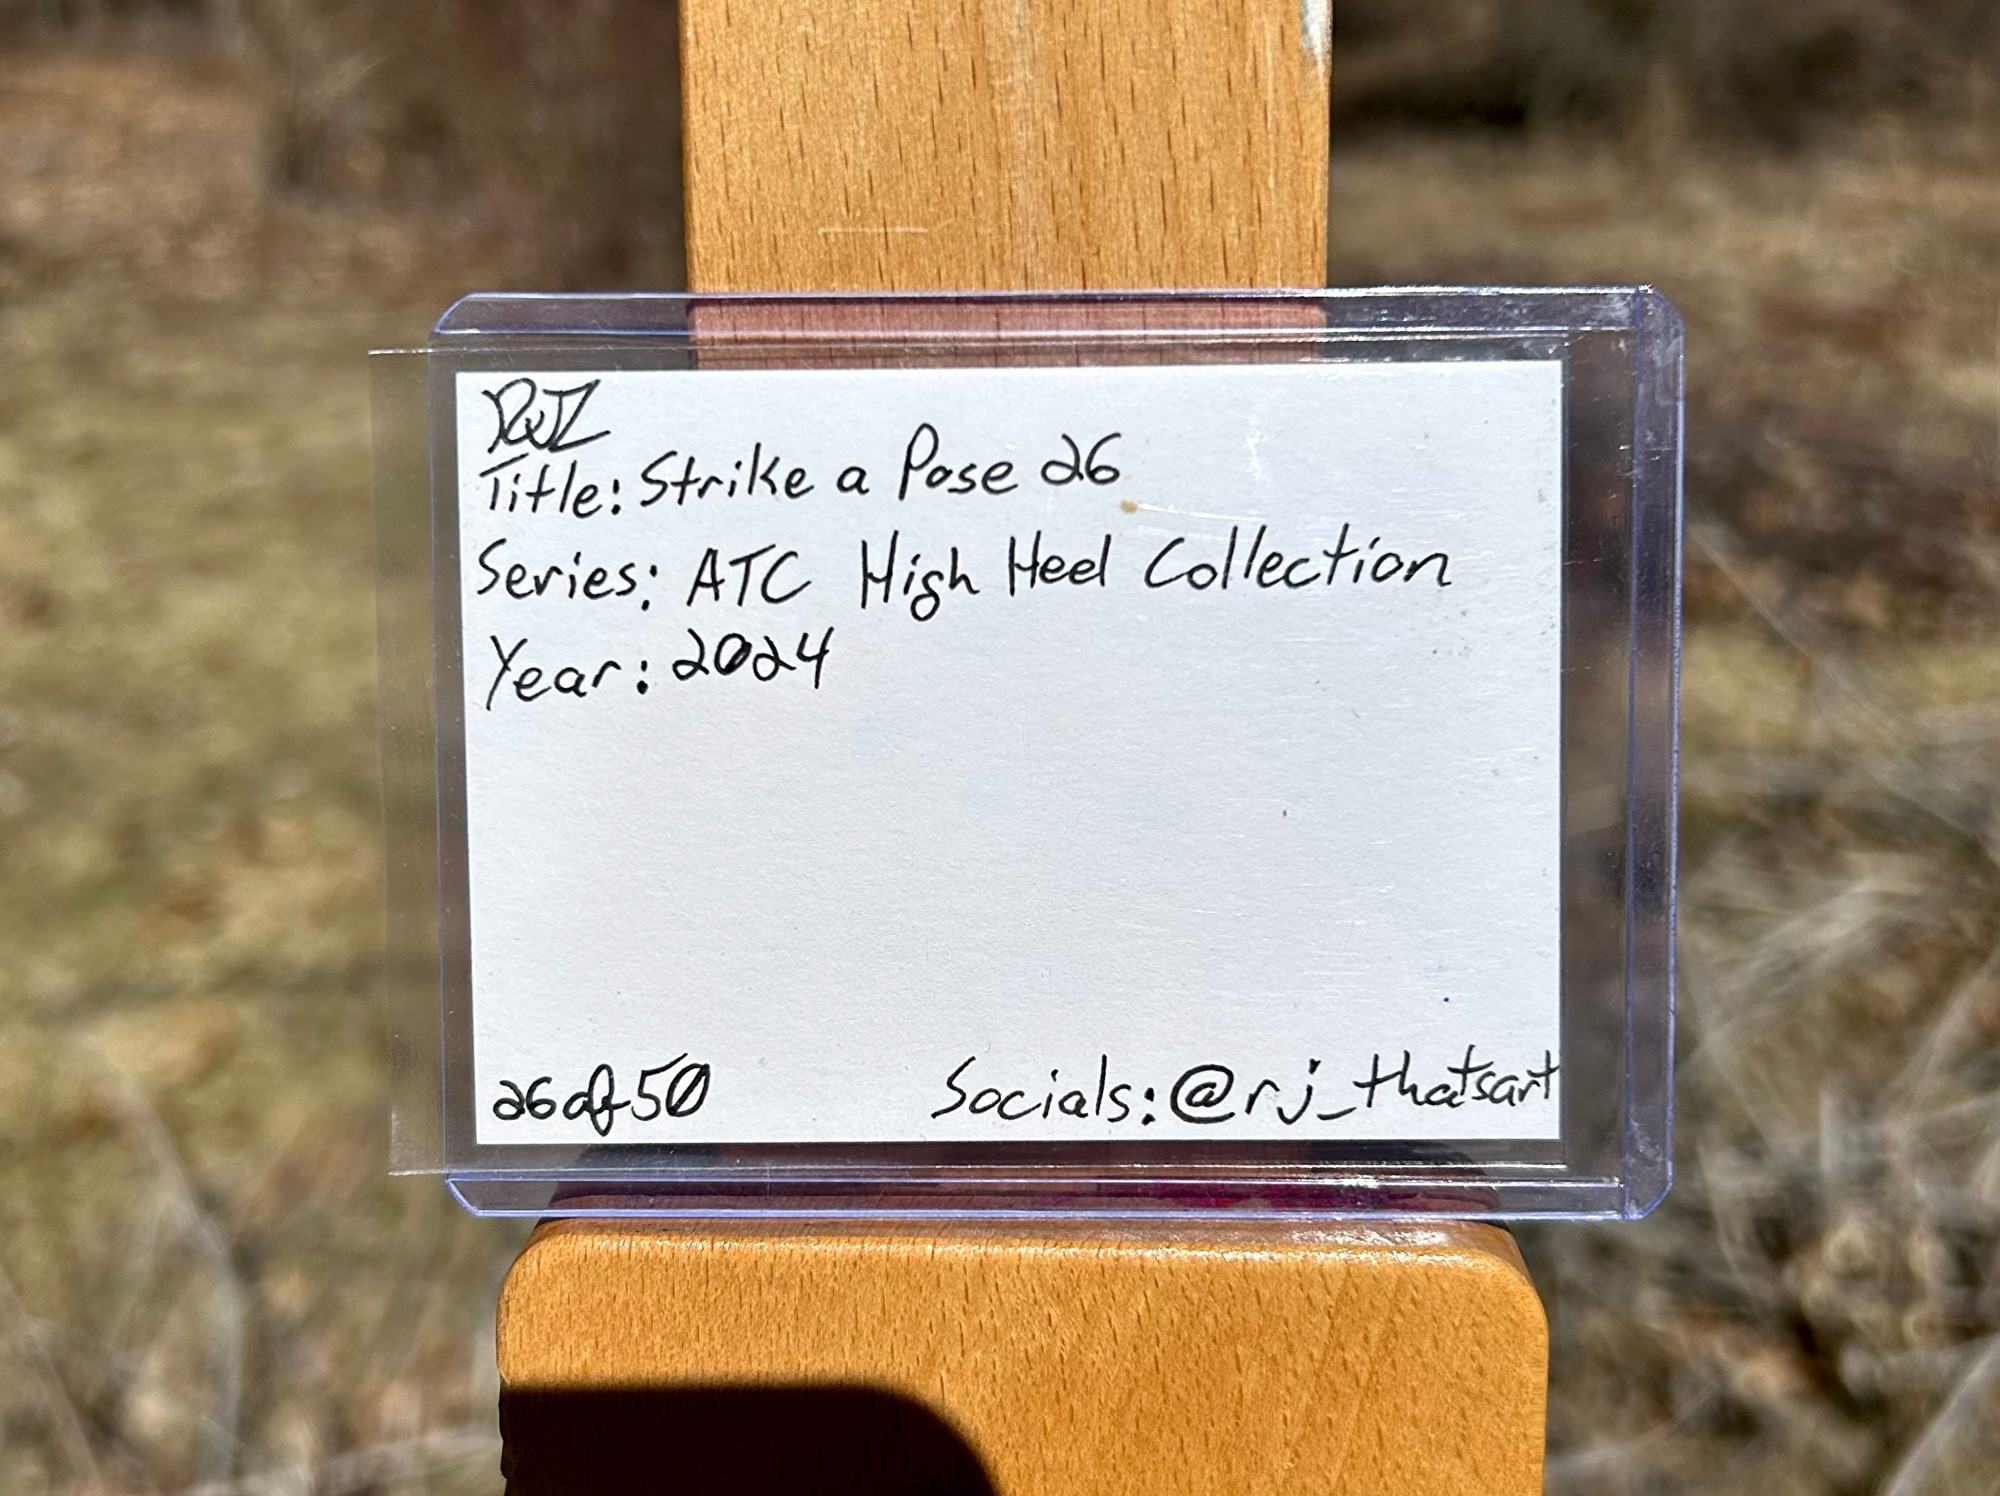 Title: Strike a Pose 26
Series: ATC High Heel Collection
Year: 2024
26 of 50
Socials: @rj_thatsart